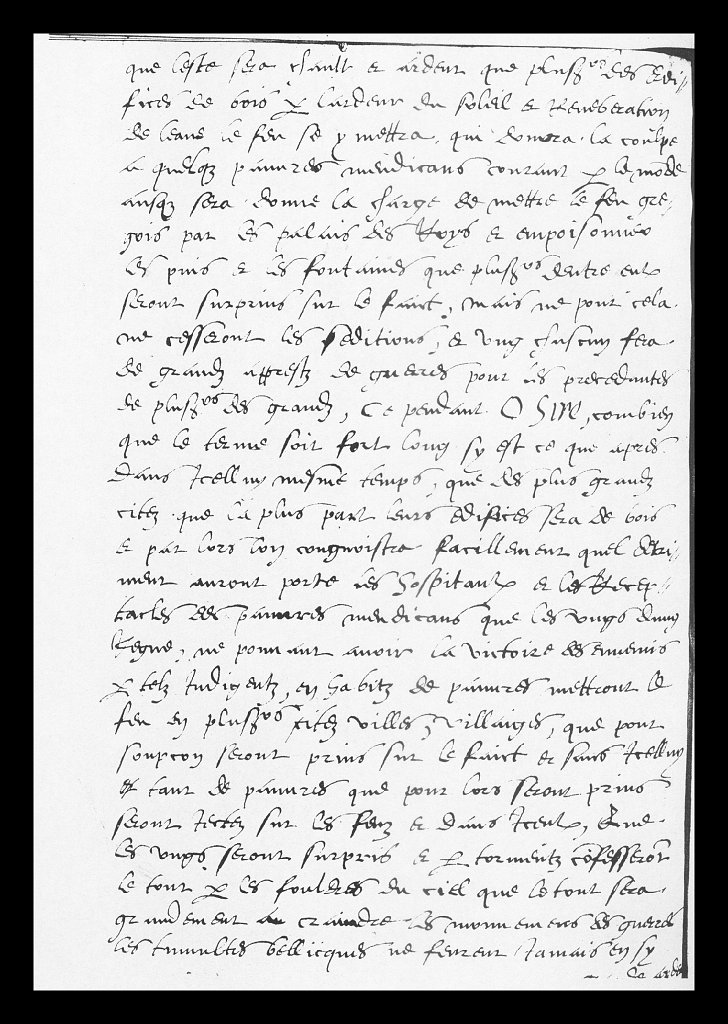 que leste sera chault et ardent que plusrs des edi-
fices de bois p lardeur du soleil et Reverberation
de leaue le feu se y mettra, qui donnra la coulpe
a quelqz pauvres mendicans courant p le mōde
ausqz sera donne la charge de mettre le feu gre-
gois par les palais des Roys et empoisonner
les puis et les fontaines que plusrs dentre eulx
seront surprins sur le faict, mais ne pour cela
ne cesseront les seditions, et ung chascun fera
de grandz apprestz de guerres pour les precedantes
de plusrs des grandz, Ce pendant O SIRE, combien
que le terme soit fort long sy est ce que apres
dans Icelluy mesme temps, que des plus grandz
citez que la plus part leurs edifices sera de bois
et par lors lon congnoistra facillement quel detri-
ment auront porte les hospitaulx et les Recep-
tacles des pauvres mendicans que les ungs dung
Regne, ne pouvant avoir la victoire des ennemis
p telz Indigentz, en habitz de pauvres mettront le
feu en plusrs citez villes, villaiges, que pour
soupcon seront prins sur le faict et sans Icelluy
et tant de pauvres que pour lors seront prins
seront Jectez sur les feuz et dans Iceulx, Que
les ungs seront surpris et p tormentz cōfesserōt
le tout p les fouldres du ciel que le tout sera
grandement a craindre les mouvemens des guerres
les tumultes bellicques ne feurent Jamais en sy